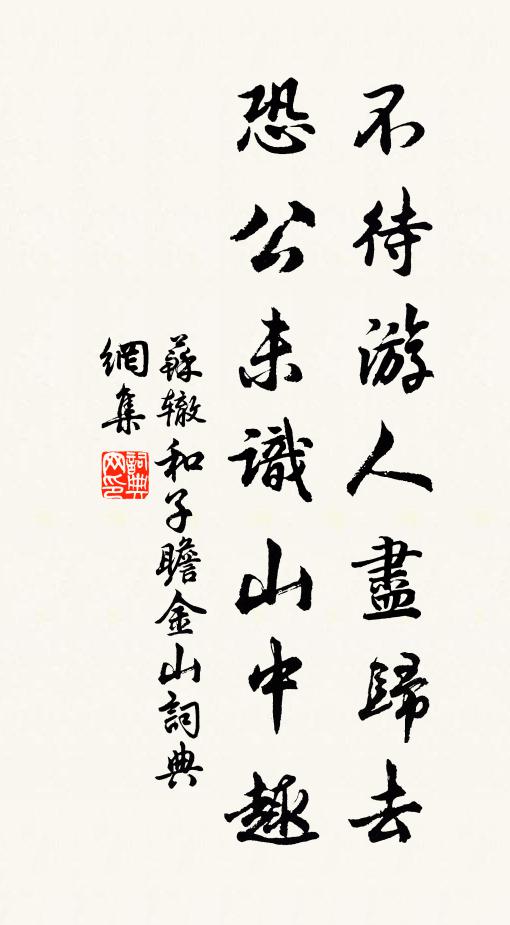 不待游人盡歸去
恐公未識山中趣
蘇辙和子瞻金山詞典
網集
詞典
网印